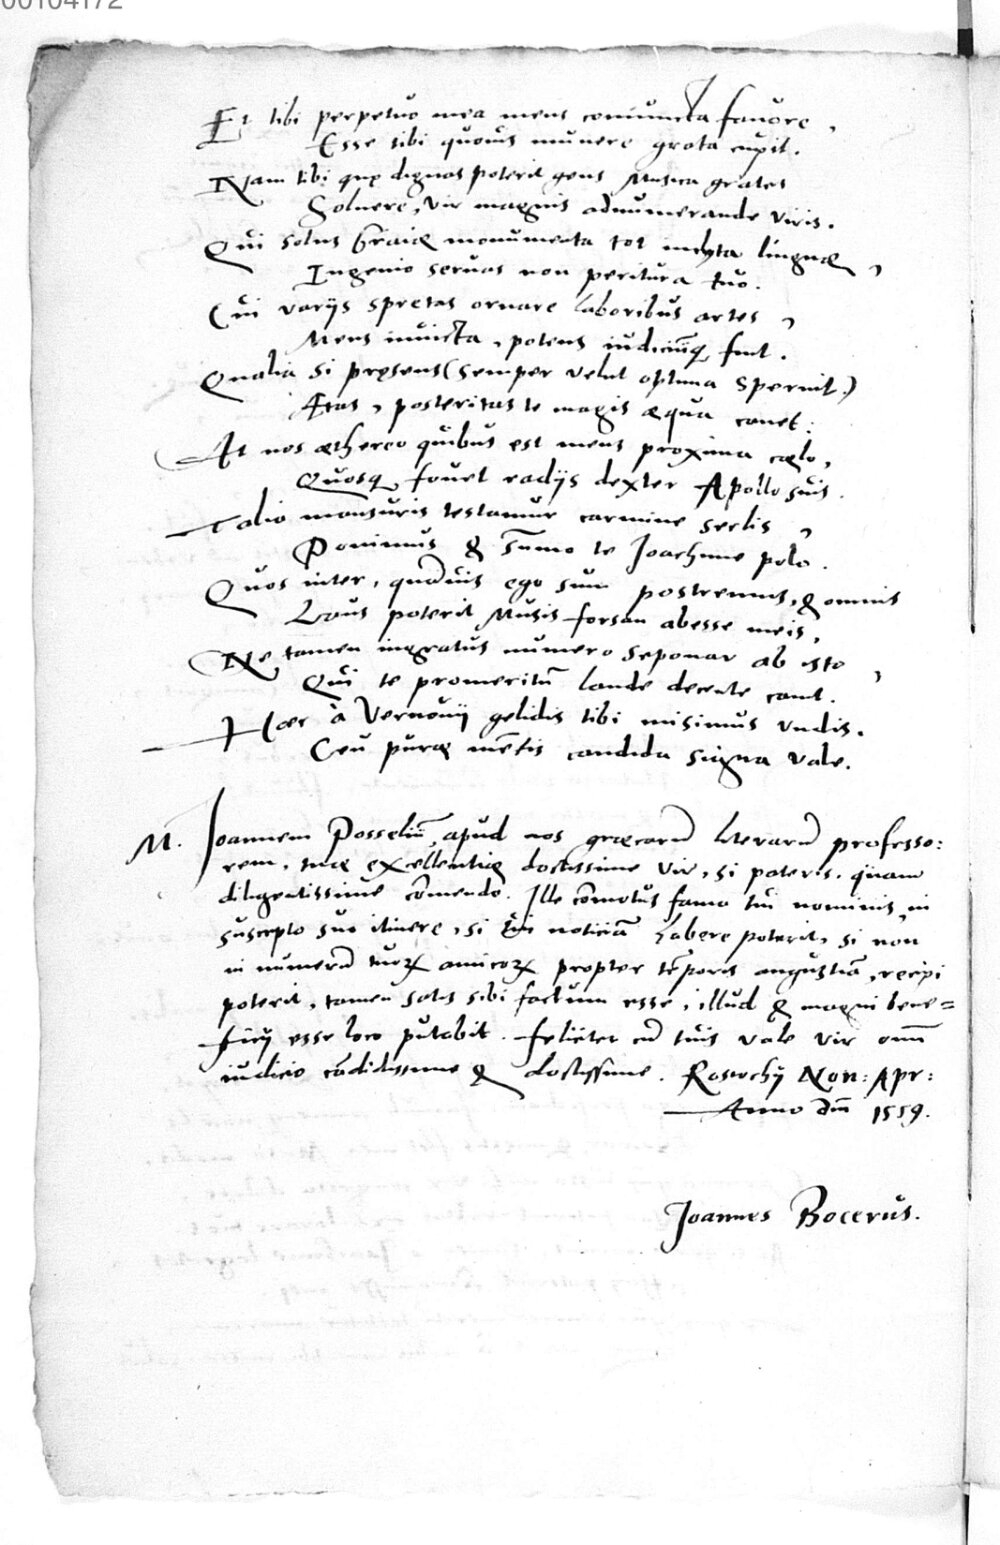 00104172
Et tibi perpetuo mea mens coniuncta fauore,
Esse tibi quouis munere grata cupit.
Nam tibi quę dignas poterit gens Musica grates
Soluere, vir magnis adnumerande viris.
Qui solus Graiæ monumenta tot inclyta linguæ,
Ingenio seruas non peritura tuo.
Cui varijs spretas ornare laboribus artes,
Mens inuicta, potens iudiciūq; fuit.
Qualia si pręsens (semper velut optima spernit.)
Ætas, posteritas te magis æqua canet:
At nos æthereo quibus est mens proxima cælo,
Quosq; fouet radijs dexter Apollo suis.
Talia mansuris testamur carmine seclis,
Ponimus & sūmo te Joachime polo.
Quos inter, quāuis ego sum postremus, & omnis
Laus poterit Musis forsan abesse meis,
Ne tamen ingratus numero seponar ab isto,
Qui te promeritū laude decente canit.
Hæc à Vernouij gelidis tibi misimus vndis.
Ceu puræ mētis candida signa vale.
M. Joannem Posseliū, apud nos græcarū literarū professo:
rem, tuæ excellentiæ doctissime vir, si poteris, quam
diligentissime cōmendo. Ille cōmotus fama tui nominis, in
suscepto suo itinere, si tui noticiā habere poterit, si non
in numerū tuoꝝ amicoꝝ propter tēporis angustiā, recipi
poterit, tamen satis sibi factum esse, illud & magni bene=
ficij esse loco putabit. feliciter cū tuis vale vir omī
iudicio cādidissime & doctissime. Rostochij Non: Apr:
Anno dm̄ 1559.
Joannes Bocerus.